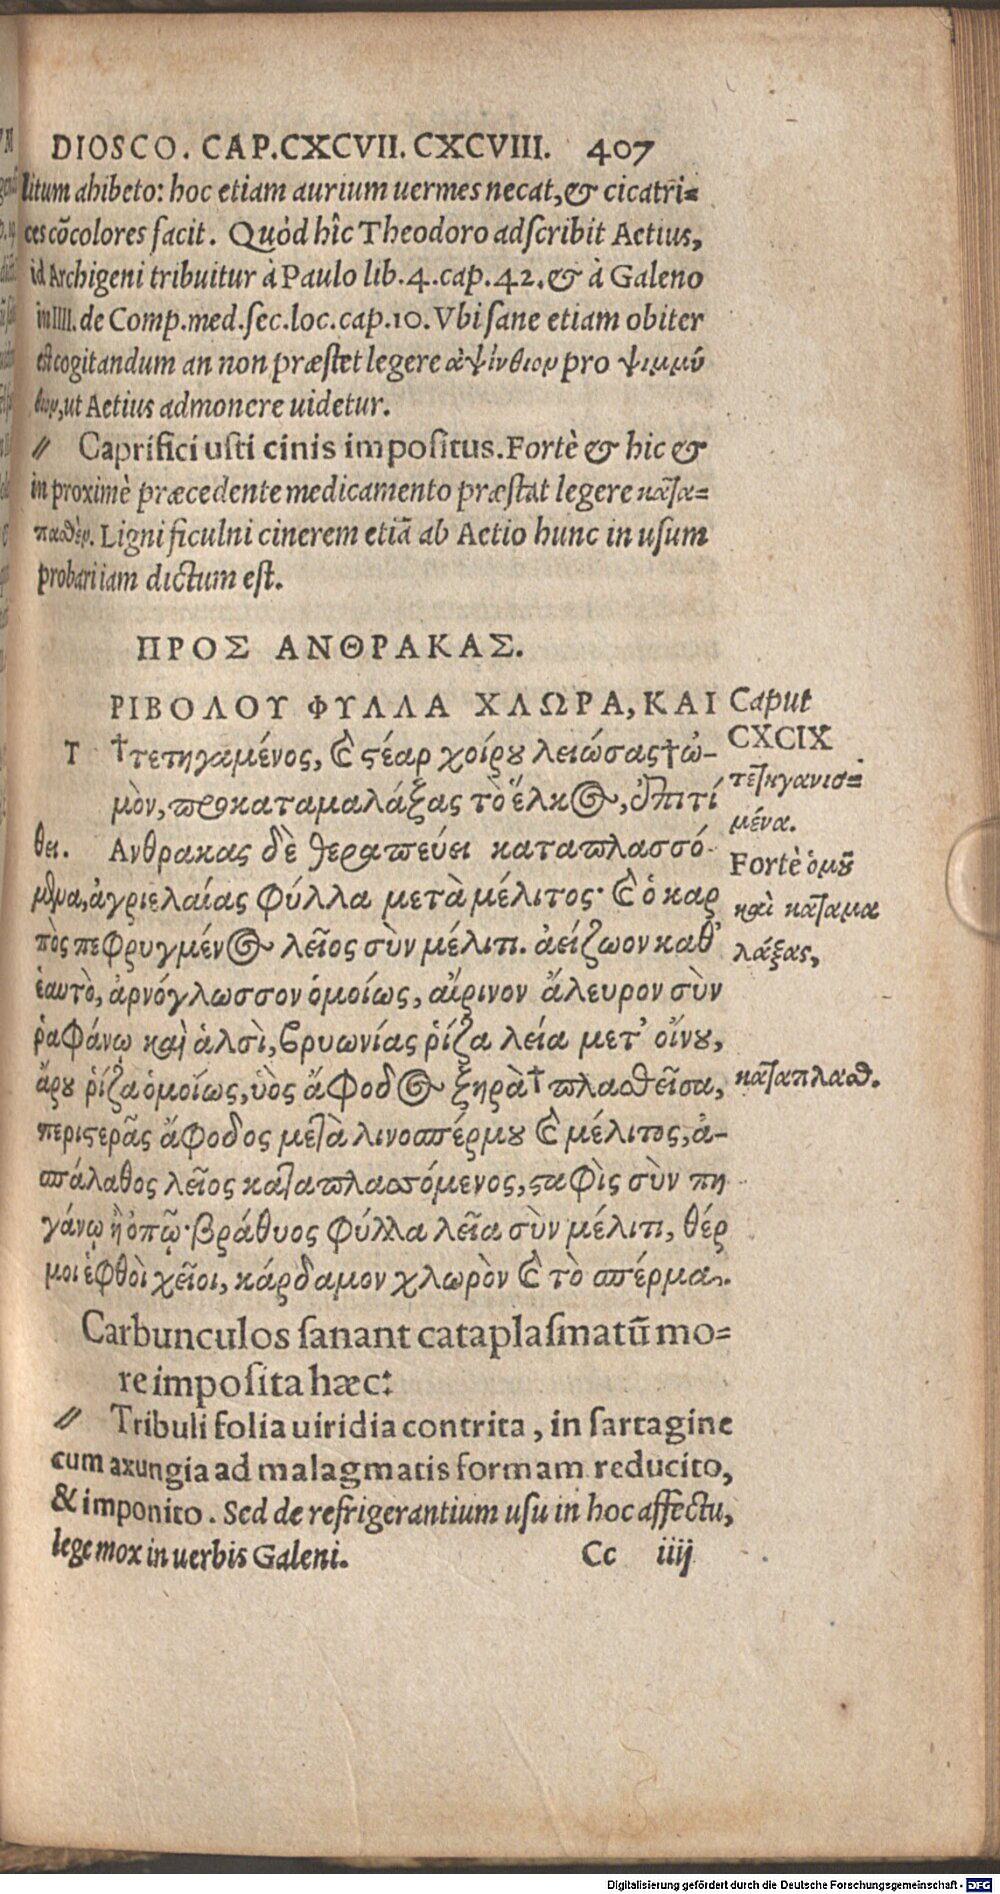 DIOSCO. CAP.CXCVII. CXCVIII. 407
litum ahibeto: hoc etiam aurium uermes necat, & cicatri=
ces cõcolores facit. Quòd hîc Theodoro adscribit Aetius,
id Archigeni tribuitur à Paulo lib.4.cap.42.& à Galeno
in IIII. de Comp.med.sec.loc.cap.10. Vbi sane etiam obiter
est cogitandum an non præstet legere ἀψίνθιον pro ψιμμύ
θιον, ut Aetius admonere uidetur.
// Caprifici usti cinis impositus. Fortè & hic &
in proximè præcedente medicamento præstat legere κατα=
παϲθὲν. Ligni ficulni cinerem etiã ab Aetio hunc in usum
probari iam dictum est.
ΠΡΟΣ ΑΝΘΡΑΚΑΣ.
ΡΙΒΟΛΟΥ ΦΥΛΛΑ ΧΛΩΡΑ, ΚΑΙ
Caput
CXCIX
Τ †τετηγαμένος, καὶ στέαρ χοίρου λειώσας †ὠ-
τετηγανισ=
μὸν, προκαταμαλάξας τὸ ἕλκος, ἐπιτί
μένα.
θει. Ανθρακας δὲ θεραπεύει καταπλασσό-
Fortè ὁμοῦ
μενα, ἀγριελαίας φύλλα μετὰ μέλιτος· καὶ ὁ καρ
καὶ καταμα
πὸς πεφρυγμένος λεῖος σὺν μέλιτι. ἀείζωον καθ'
λάξας,
ἑαυτὸ, ἀρνόγλωσσον ὁμοίως, αἴρινον ἄλευρον σὺν
ῥαφάνῳ καὶ ἁλσὶ, βρυωνίας ῥίζα λεία μετ' οἴνου,
ἄρου ῥίζα ὁμοίως, ὑὸς ἄφοδος ξηρὰ† πλασθεῖσα,
καταπλασθ.
περιστερᾶς ἄφοδος μετὰ λινοσπέρμου καὶ μέλιτος, ἀ-
σπάλαθος λεῖος καταπλασσόμενος, σταφὶς σὺν πη
γάνῳ ἢ ὀπῷ· βράθυος φύλλα λεῖα σὺν μέλιτι, θέρ
μοι ἑφθοὶ χεῖοι, κάρδαμον χλωρὸν καὶ τὸ σπέρμα.
Carbunculos sanant cataplasmatũ mo=
re imposita hæc:
// Tribuli folia uiridia contrita, in sartagine
cum axungia ad malagmatis formam reducito,
& imponito. Sed de refrigerantium usu in hoc affectu,
lege mox in uerbis Galeni.
Cc iiij
Digitalisierung gefördert durch die Deutsche Forschungsgemeinschaft - DFG